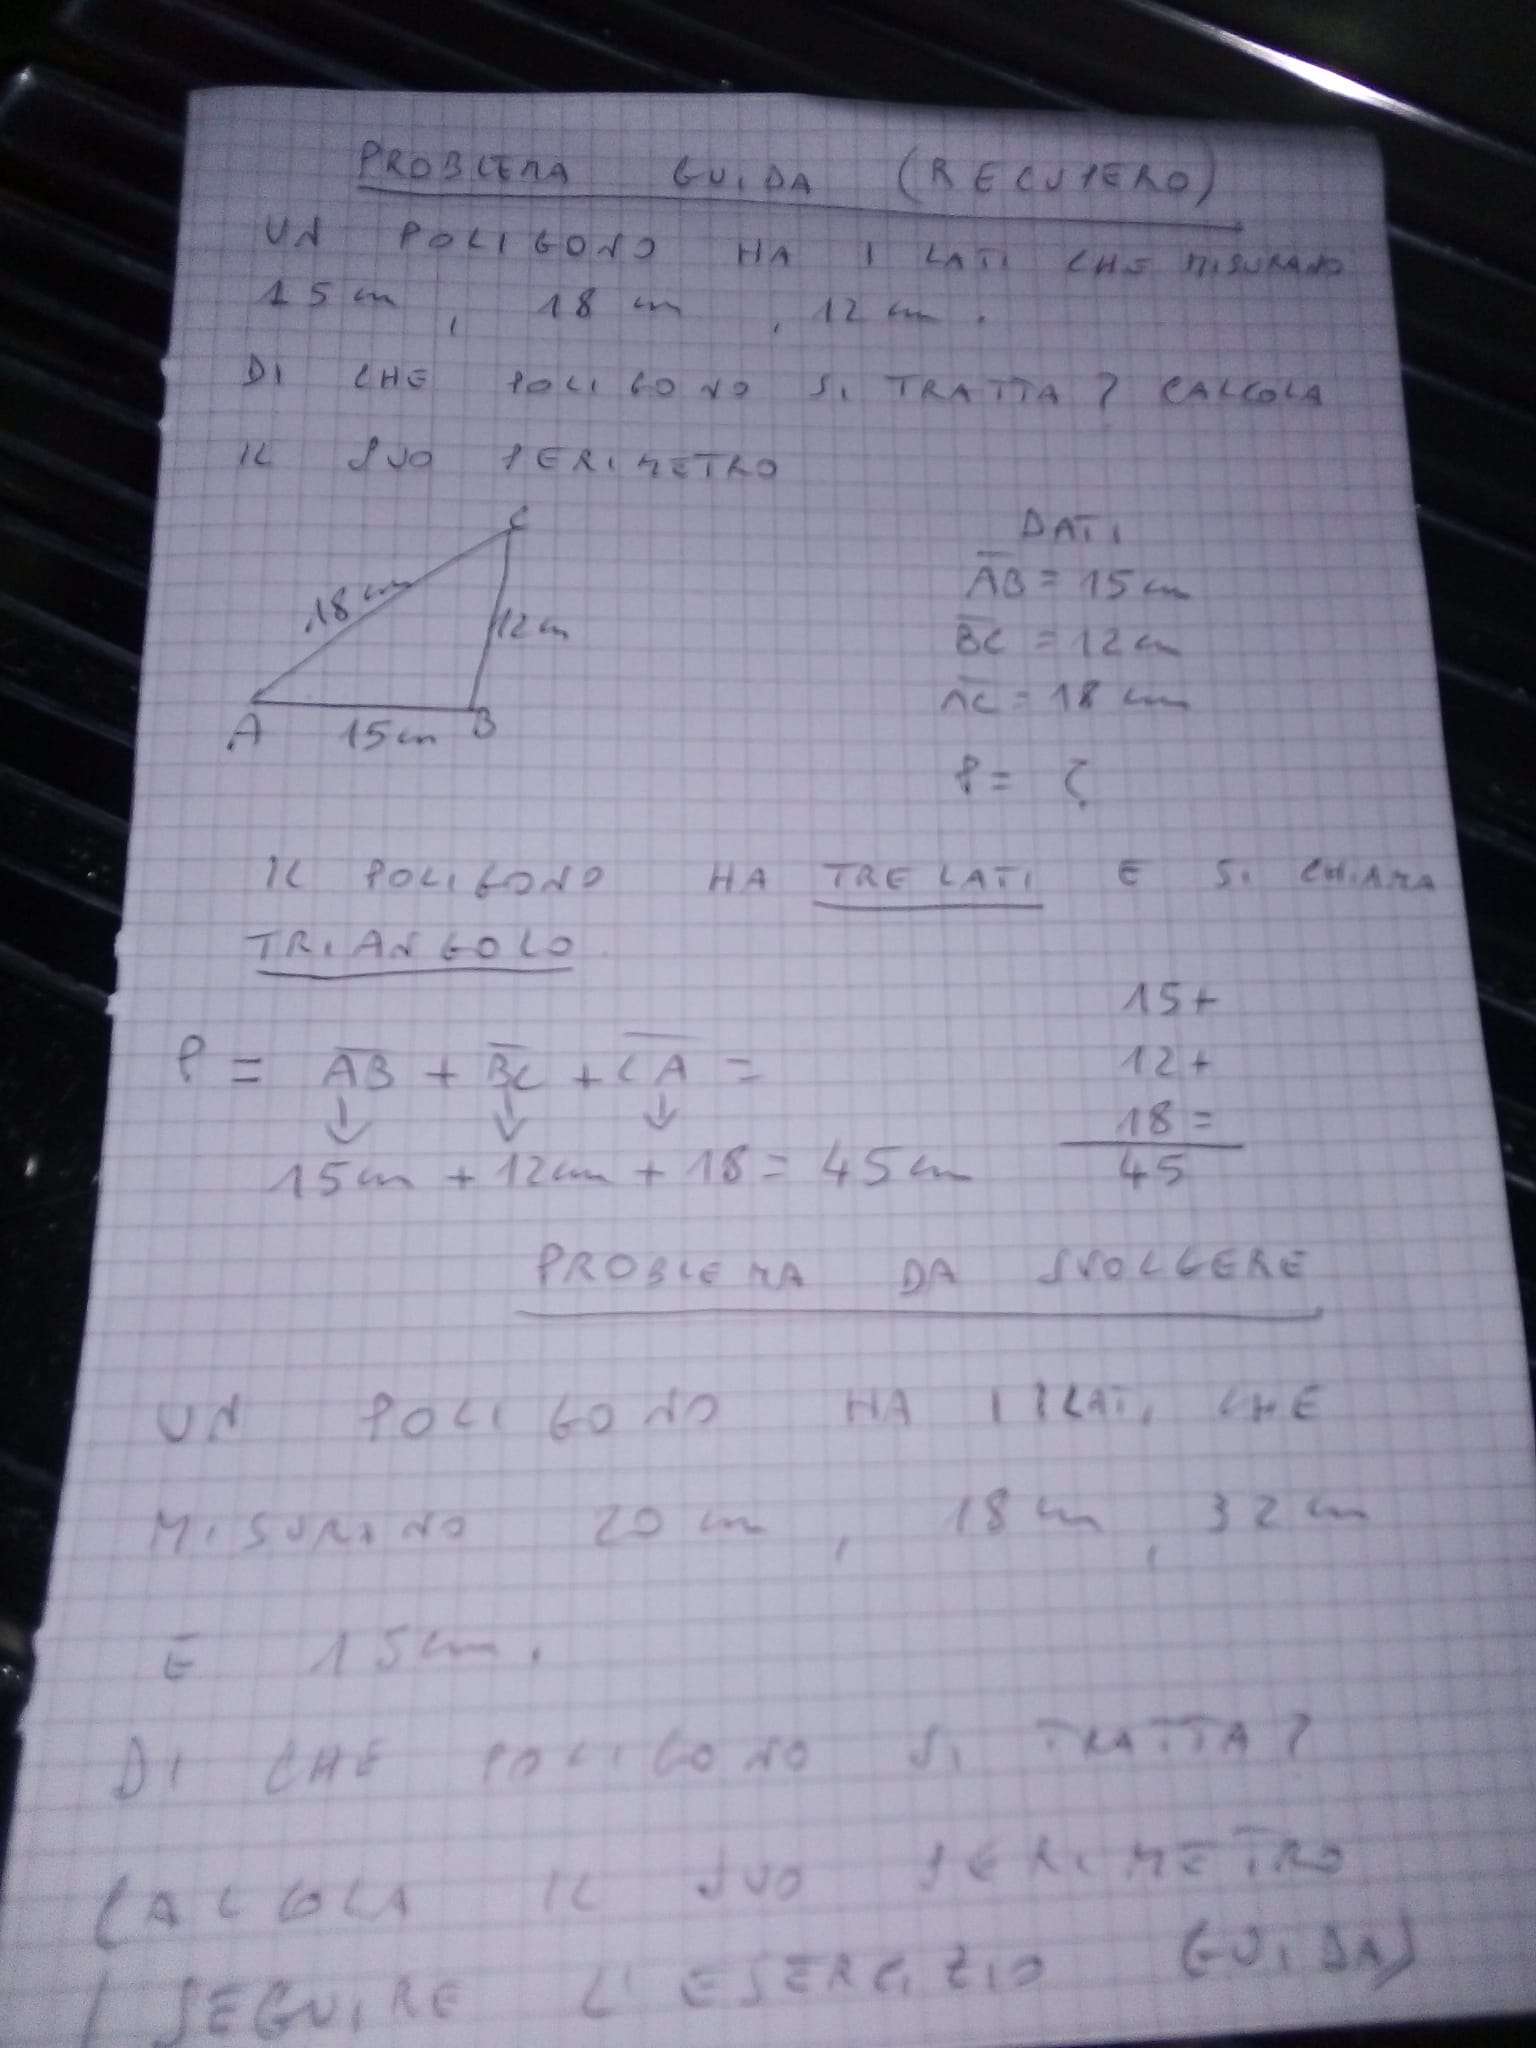 PROBLEMA GUIDA (RECUPERO)
UN POLIGONO HA I LATI CHE MISURANO
15 cm, 18 cm, 12 cm.
DI CHE POLIGONO SI TRATTA? CALCOLA
IL SUO PERIMETRO
C
DATI
18 cm
12 cm
A 15 cm B
AB = 15 cm
BC = 12 cm
AC = 18 cm
P = ?
IL POLIGONO HA TRE LATI E SI CHIAMA
TRIANGOLO.
P = AB + BC + CA =
↓ ↓ ↓
15 cm + 12 cm + 18 = 45 cm
15+
12+
18=
45
PROBLEMA DA SVOLGERE
UN POLIGONO HA I LATI CHE
MISURANO 20 cm, 18 cm, 32 cm
E 15 cm.
DI CHE POLIGONO SI TRATTA?
CALCOLA IL SUO PERIMETRO
(SEGUIRE L'ESERCIZIO GUIDA)